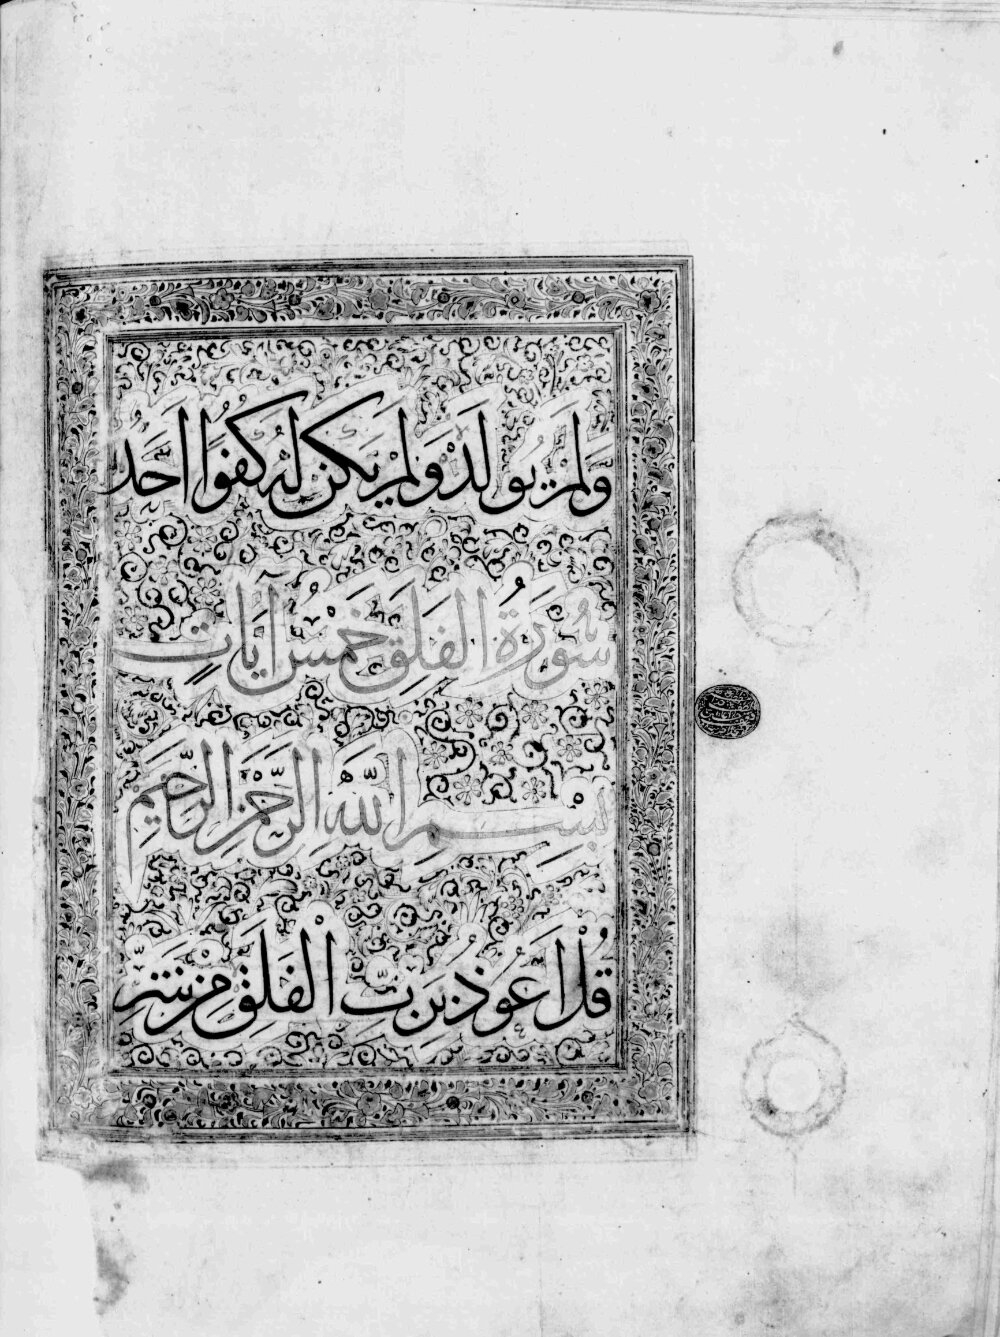 وَلَمْ يُولَدْ وَلَمْ يَكُنْ لَهُ كُفُوًا أَحَدٌ
سُورَةُ الفَلَقِ خَمْسُ آيَاتٍ
بِسْمِ اللَّهِ الرَّحْمٰنِ الرَّحِيمِ
قُلْ أَعُوذُ بِرَبِّ الْفَلَقِ مِنْ شَرِّ